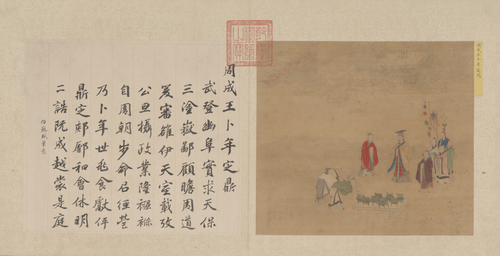 周成王卜年定鼎
武登幽阜實求天保
三塗嶽鄙顧瞻周道
爰審雒伊天室載攷
公旦攝政業隆襁褓
自周朝步命召經營
乃卜年世龜食獻伻
鼎定郟鄏和會休明
二誥既成越裳是庭
仿蘇軾筆意